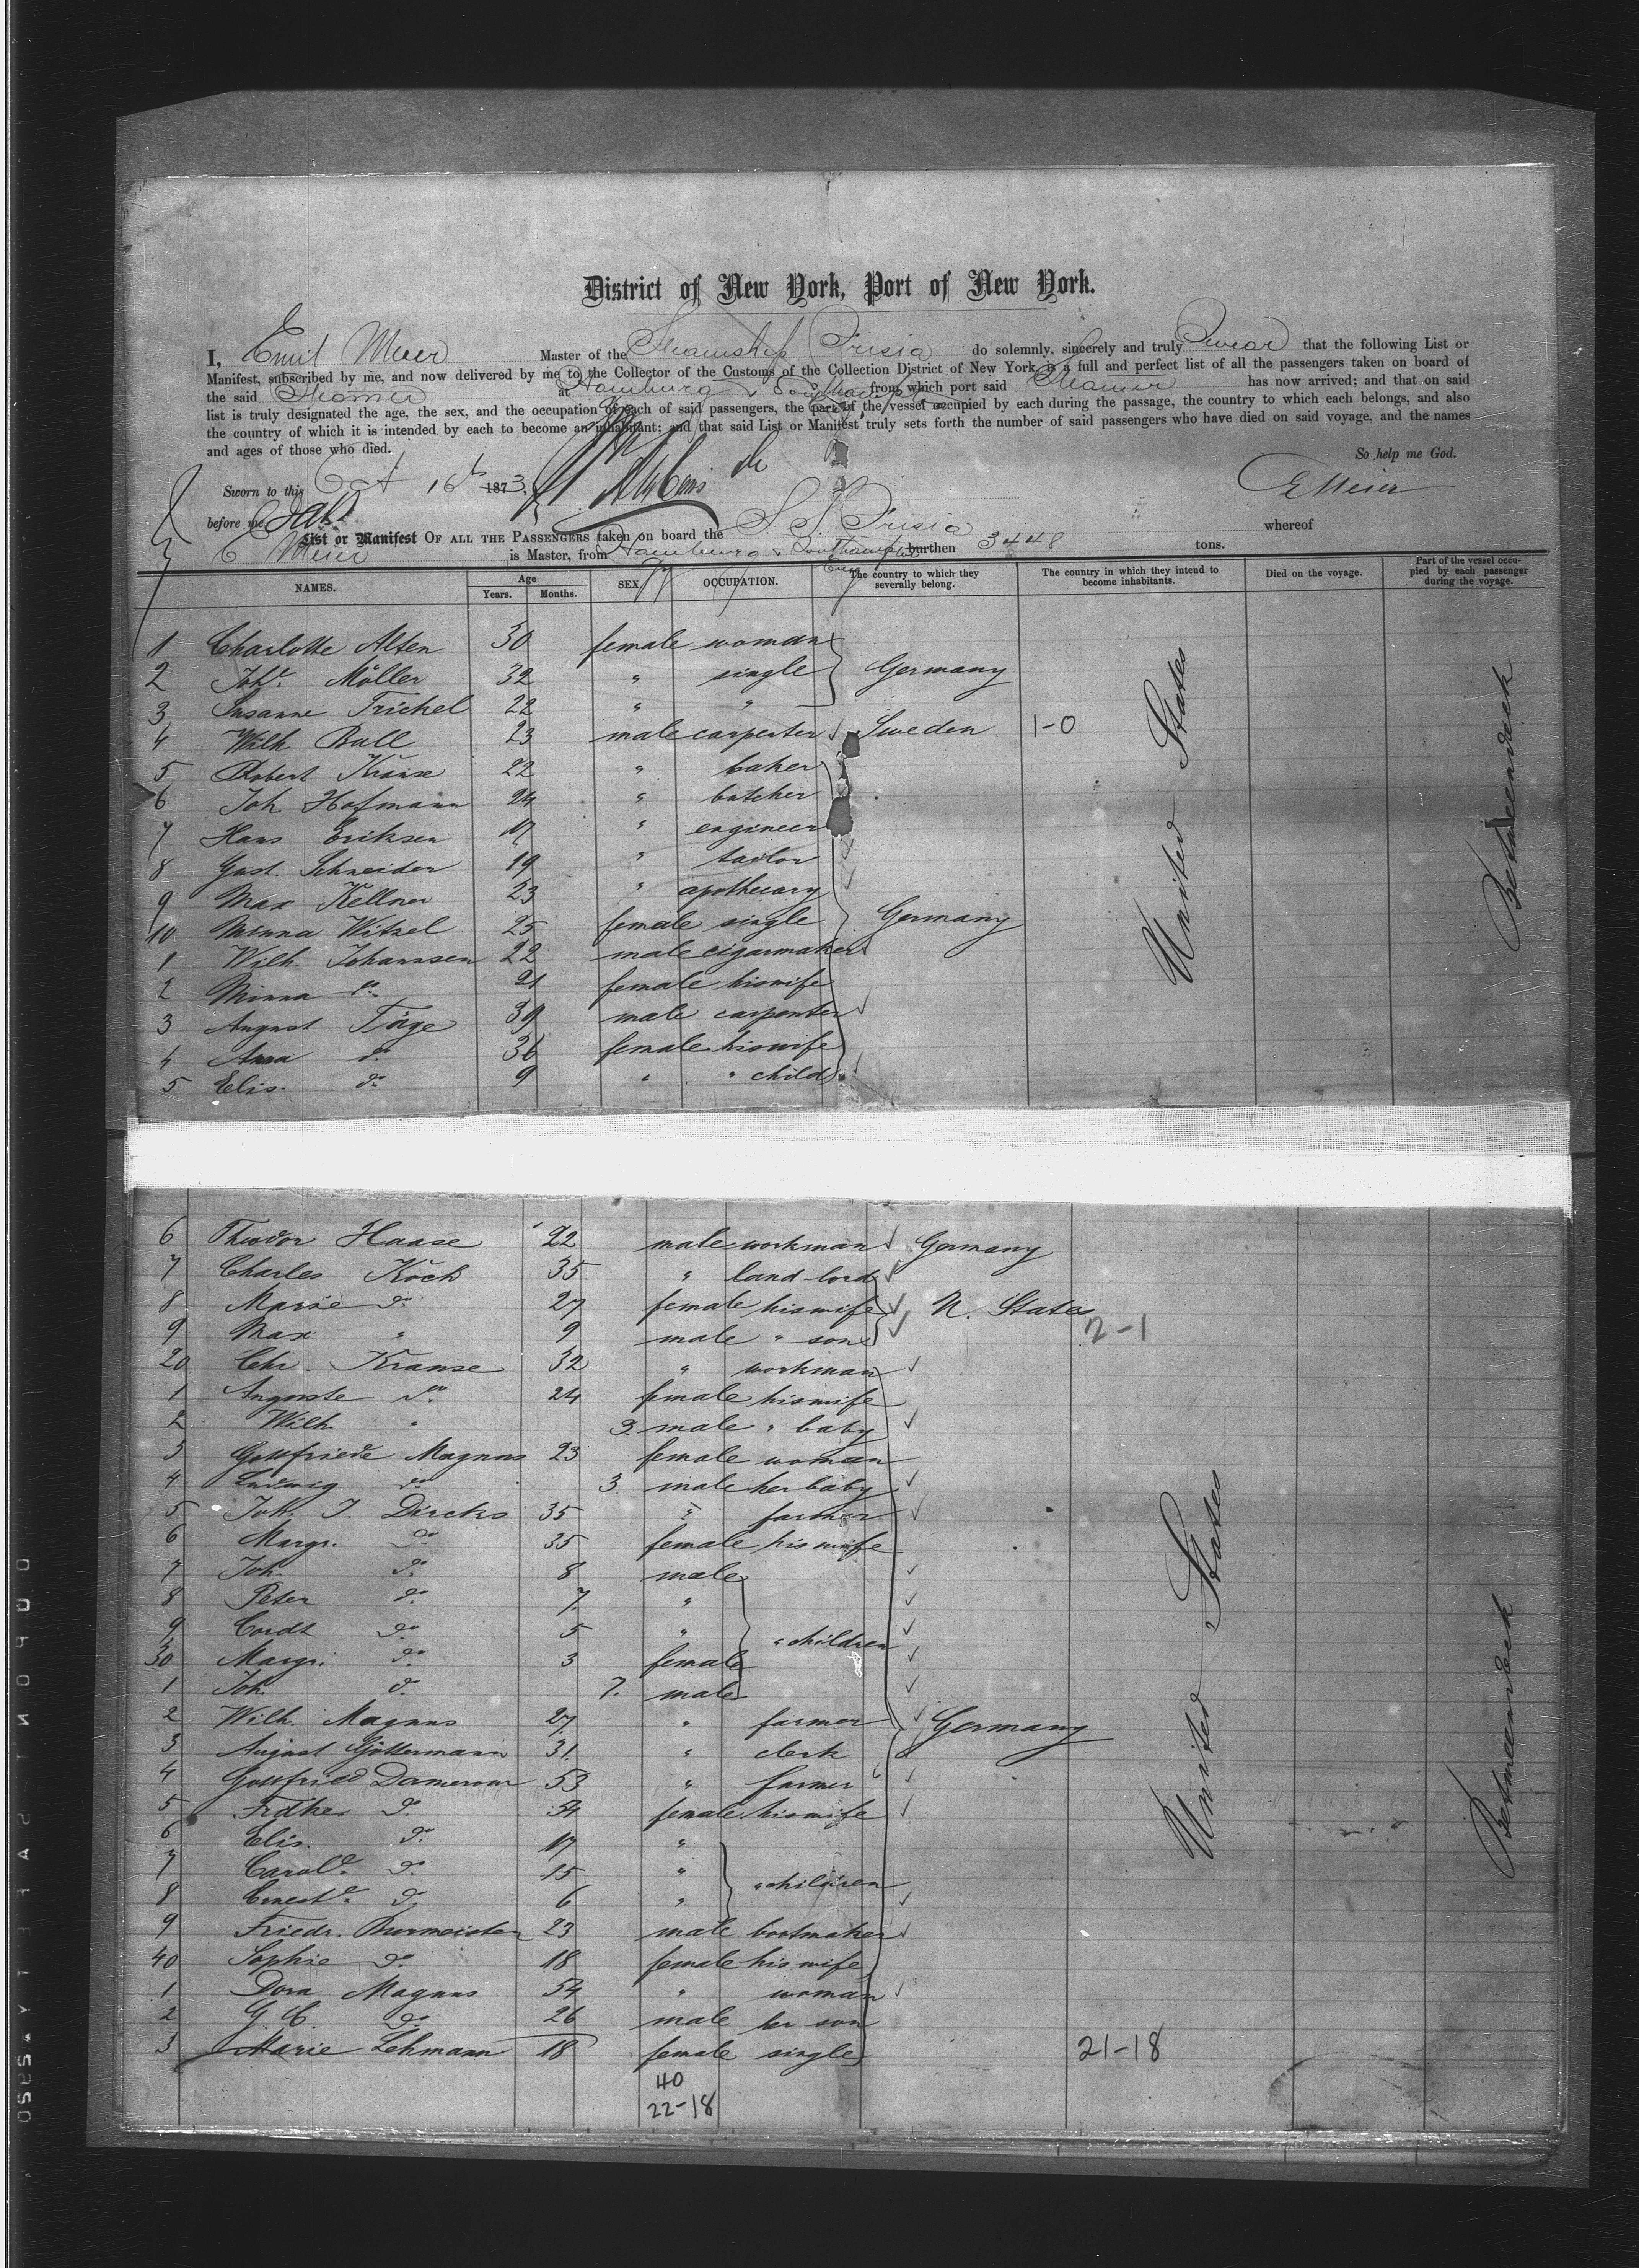 District of New York, Port of New York.
I, Emil Meier Master of the Steamship Frisia do solemnly, sincerely and truly Swear that the following List or
Manifest, subscribed by me, and now delivered by me to the Collector of the Customs of the Collection District of New York, is a full and perfect list of all the passengers taken on board of
the said Steamer at Hamburg & Southampton from which port said Steamer has now arrived; and that on said
list is truly designated the age, the sex, and the occupation of each of said passengers, the part of the vessel occupied by each during the passage, the country to which each belongs, and also
the country of which it is intended by each to become an inhabitant; and that said List or Manifest truly sets forth the number of said passengers who have died on said voyage, and the names
and ages of those who died. So help me God.
Sworn to this Oct 16th 1873, E Meier
before me
List or Manifest OF ALL THE PASSENGERS taken on board the S. S. Frisia whereof
E Meier is Master, from Hamburg & Southampton burthen 3448 tons.
NAMES. Age Years. Months. SEX. OCCUPATION. The country to which they severally belong. The country in which they intend to become inhabitants. Died on the voyage. Part of the vessel occupied by each passenger during the voyage.
1 Charlotte Alten 30 female woman
2 Joh. Möller 32 " single Germany
3 Susanne Frichel 22 " "
4 Wilh Ball 23 male carpenter Sweden 1-0
5 Robert Krause 22 " baker
6 Joh. Hofmann 24 " butcher
7 Hans Eriksen 17 " engineer
8 Gust. Schneider 19 " tailor
9 Max Kellner 23 " apothecary
10 Minna Witzel 25 female single Germany
1 Wilh. Johannsen 22 male cigarmaker
2 Minna do 21 female his wife
3 August Föge 39 male carpenter
4 Anna do 36 female his wife
5 Elis. do 9 " " child
United States
Betweendeck
6 Theodor Haase 22 male workman Germany
7 Charles Koch 35 " land-lord
8 Marie do 27 female his wife U. States
9 Max " 9 male " son 2-1
20 Chr. Krause 32 " workman
1 Auguste do 24 female his wife
2 Wilh. " 3. male " baby
3 Gottfriede Magnus 23 female woman
4 Ludwig do 3. male her baby
5 Joh. J. Dircks 35 " farmer
6 Margr. do 35 female his wife
7 Joh. do 8 male
8 Peter do 7. "
9 Cordt do 5 " " children
30 Margr. do 3 female
1 Joh. do 7. male
2 Wilh. Magnus 27. " farmer Germany
3 August Göttermann 31. " clerk
4 Gottfried Damerow 53 " farmer
5 Frdke. do 54 female his wife
6 Elis. do 17 "
7 Carole. do 15 " " children
8 Erneste. do 6 "
9 Friedr. Burmeister 23 male bootmaker
40 Sophie do 18 female his wife
1 Dora Magnus 54 " woman
2 G. C. do 26 male her son
3 Marie Lehmann 18 female single 21-18
United States
Betweendeck
40
22-18